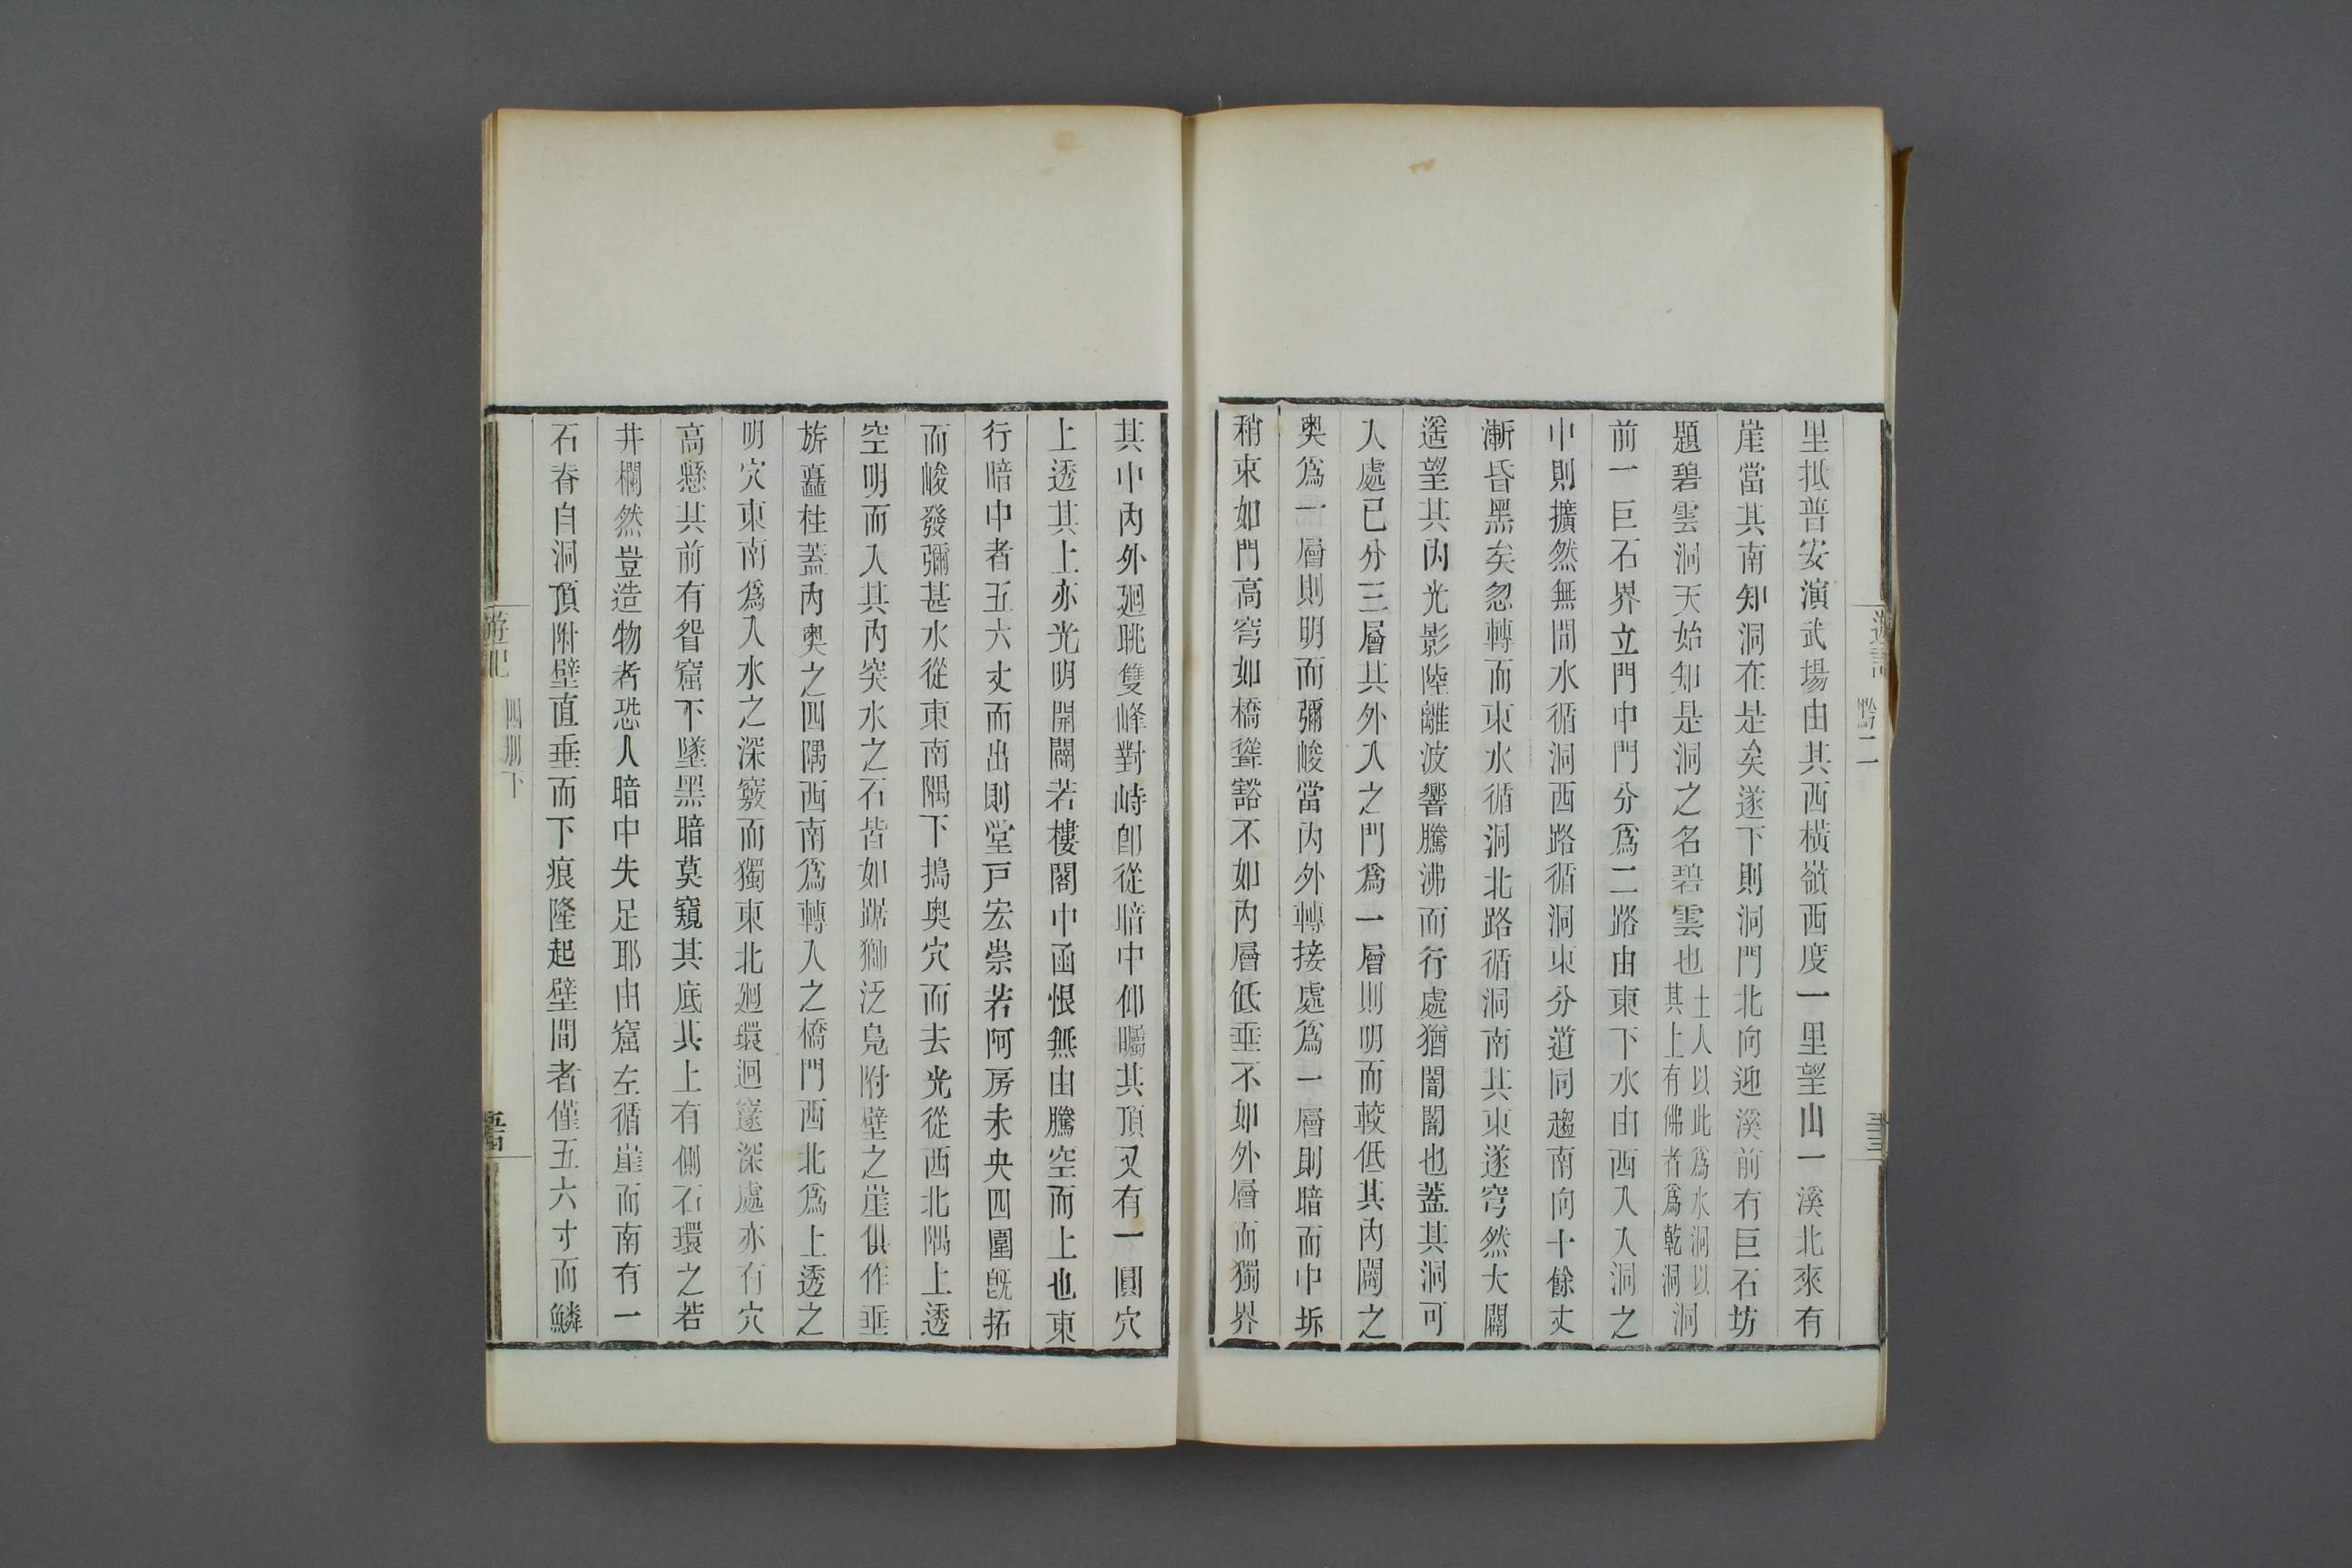 遊記 黔二
里抵普安演武場由其西橫嶺西度一里望山一溪北來有
崖當其南知洞在是矣遂下則洞門北向迎溪前有巨石坊
題碧雲洞天始知是洞之名碧雲也土人以此爲水洞以其上有佛者爲乾洞洞
前一巨石界立門中門分爲二路由東下水由西入入洞之
中則擴然無間水循洞西路循洞東分道同趨南向十餘丈
漸昏黑矣忽轉而東水循洞北路循洞南其東遂穹然大闢
遥望其內光影陸離波響騰沸而行處猶闇闇也蓋其洞可
入處已分三層其外入之門爲一層則明而較低其內闢之
奧爲一層則明而彌峻當內外轉接處爲一層則暗而中坼
稍束如門高穹如橋聳豁不如內層低垂不如外層而獨界
其中內外廻眺雙峰對峙卽從暗中仰矚其頂又有一圓穴
上透其上亦光明開闢若樓閣中函恨無由騰空而上也東
行暗中者五六丈而出則堂戸宏崇若阿房未央四圍旣拓
而峻發彌甚水從東南隅下搗奧穴而去光從西北隅上透
空明而入其內突水之石皆如踞獅泛鳧附壁之崖俱作垂
旂矗柱蓋內奥之四隅西南爲轉入之橋門西北爲上透之
明穴東南爲入水之深竅而獨東北廻環迥邃深處亦有穴
高懸其前有眢窟下墜黑暗莫窺其底其上有側石環之若
井欄然豈造物者恐人暗中失足耶由窟左循崖而南有一
石脊自洞頂附壁直垂而下痕隆起壁間者僅五六寸而鱗
遊記 四册下